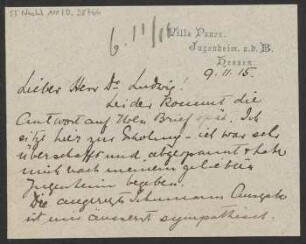 Villa Pauer.
Jugenheim. a.d.B.
Hessen
9. 11. 15.
Lieber Herr Dr Ludwig!
Leider kommt die
Antwort auf Ihren Brief spät. Ich
sitze hier zur Erholung – ich war sehr
überschafft und abgespannt & habe
mich nach meinem geliebten
Jugenheim begeben.
Die angeregte Schumann Ausgabe
ist mir äusserst sympathisch.